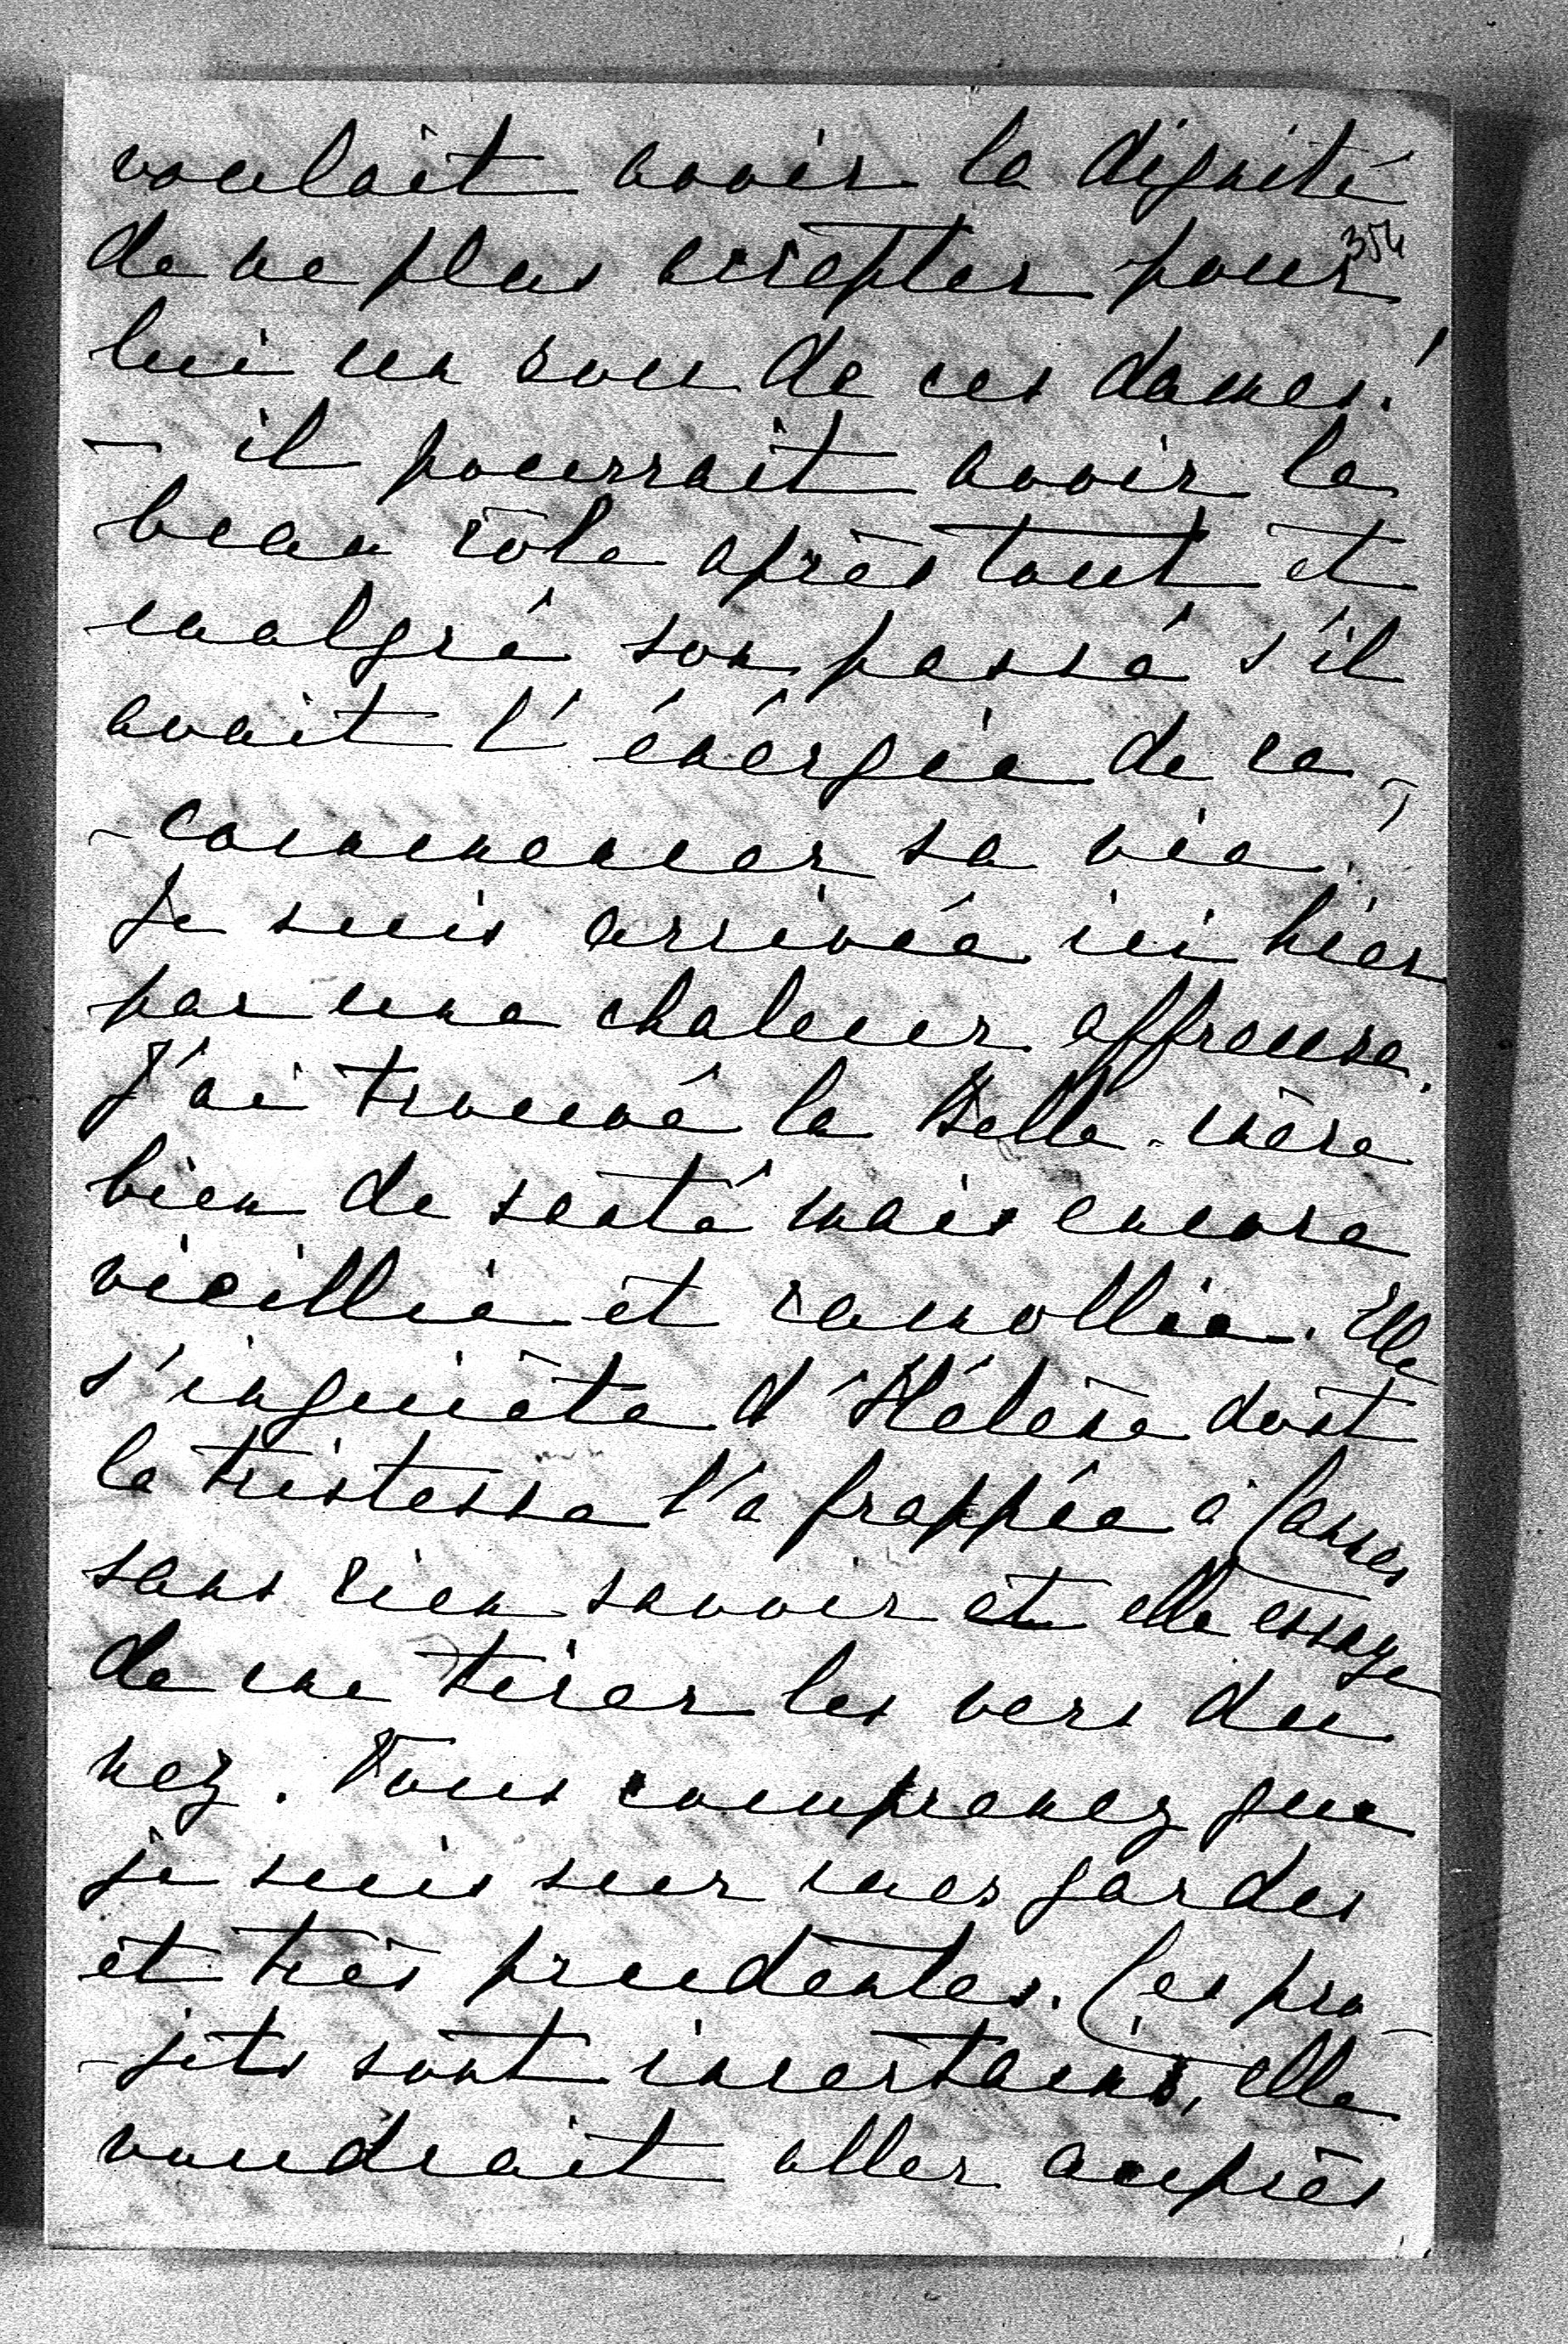 voulait avoir la dignité
354
de ne plus accepter pour
lui un sou de ces dames !
- il pourrait avoir le
beau rôle après tout et
malgré son passé s'il
avait l'énérgie de re-
-commencer sa vie.
Je suis arrivée ici hier
par une chaleur affreuse.
J'ai trouvé la Belle-mère
bien de santé mais encore
vieillie et ramollie. Elle
s'inquiète d'Hélène dont
la tristesse l'a frappée à
sans rien savoir et elle essaye
de me tirer les vers du
nez. Vous comprenez que
je suis sur mes gardes
et très prudentes. Ses pro-
-jets sont incertains, elle
voudrait aller auprès